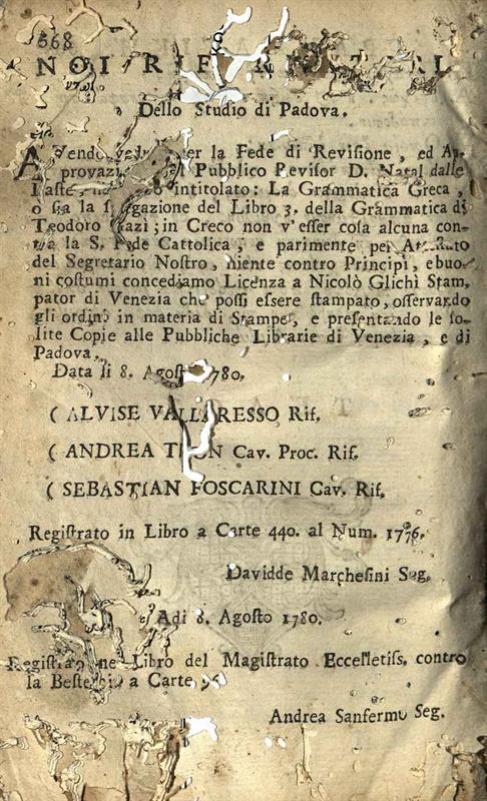 568
NOI RIF
Dello Studio di Padova.
er la Fede di Revisione, ed Ap-
provazi Pubblico Revisor D. Natal dalle
Laste, intitolato: La Grammatica Greca,
o sia la s gazione del Libro 3. della Grammatica di
Teodoro Gazi; in Greco non v'esser cosa alcuna con-
la S. Fede Cattolica, e parimente per Attestato
del Segretario Nostro, niente contro Principi, e buo-
ni costumi concediamo Licenza a Nicolò Glichì Stam-
pator di Venezia che possi essere stampato, osservando
gli ordini in materia di Stampe, e presentando le so-
lite Copie alle Pubbliche Librarie di Venezia, e di
Padova.
Data li 8. Agosto 1780.
( ALVISE VALLARESSO Rif.
( ANDREA TRON Cav. Proc. Rif.
( SEBASTIAN FOSCARINI Cav. Rif.
Registrato in Libro a Carte 440. al Num. 1776.
Davidde Marchesini Seg.
Adi 8. Agosto 1780.
Libro del Magistrato Eccelletiss. contro
la Bestemmia a Carte
Andrea Sanfermo Seg.